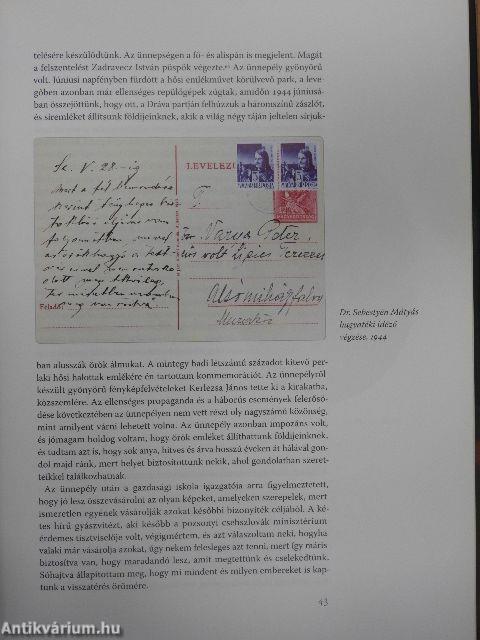 telésére készülődtünk. Az ünnepségen a fő- és alispán is megjelent. Magát
a felszentelést Zadravecz István püspök végezte. Az ünnepély gyönyörű
volt. Júniusi napfényben fürdött a hősi emlékművet körülvevő park, a leve-
gőben azonban már ellenséges repülőgépek zúgtak, amidőn 1944 júniusá-
ban összejöttünk, hogy ott, a Dráva partján felhúzzuk a háromszínű zászlót,
és síremléket állítsunk földijeinknek, akik a világ négy táján jeltelen sírjuk-
V. 28.-ig
LEVELEZŐ
MAGYAR POSTA
MAGYAR POSTA
MAGYARORSZÁG
Varga Péter,
volt
Feladó:
Alsómihályfalva
Muraköz
Dr. Sebestyén Mátyás
hagyatéki idéző
végzése, 1944
ban alusszák örök álmukat. A mintegy hadi létszámú századot kitevő per-
laki hősi halottak emlékére én tartottam kommemorációt. Az ünnepélyről
készült gyönyörű fényképfelvételeket Kerlezsa János tette ki a kirakatba,
közszemlére. Az ellenséges propaganda és a háborús események felerősö-
dése következtében az ünnepélyen nem vett részt oly nagyszámú közönség,
mint amilyent várni lehetett volna. Az ünnepély azonban impozáns volt,
és jómagam boldog voltam, hogy örök emléket állíthattunk földijeinknek,
és tudtam azt is, hogy sok anya, hitves és árva hosszú éveken át hálával gon-
dol majd ránk, mert helyet biztosítottunk nekik, ahol gondolatban szeret-
teikkel találkozhatnak.
Az ünnepély után a gazdasági iskola igazgatója arra figyelmeztetett,
hogy jó lesz összevásárolni az olyan képeket, amelyeken szerepelek, mert
ismeretlen egyének vásárolják azokat későbbi bizonyíték céljából. A ké-
tes hírű gyászvitézt, aki később a pozsonyi csehszlovák minisztérium
érdemes tisztviselője volt, végigmértem, és azt válaszoltam neki, hogyha
valaki már vásárolja azokat, úgy nekem felesleges azt tenni, mert így máris
biztosítva van, hogy maradandó lesz, amit megtettünk és cselekedtünk.
Sóhajtva állapítottam meg, hogy mi mindent és milyen embereket is kap-
tunk a visszatérés örömére.
43
Antikvárium.hu